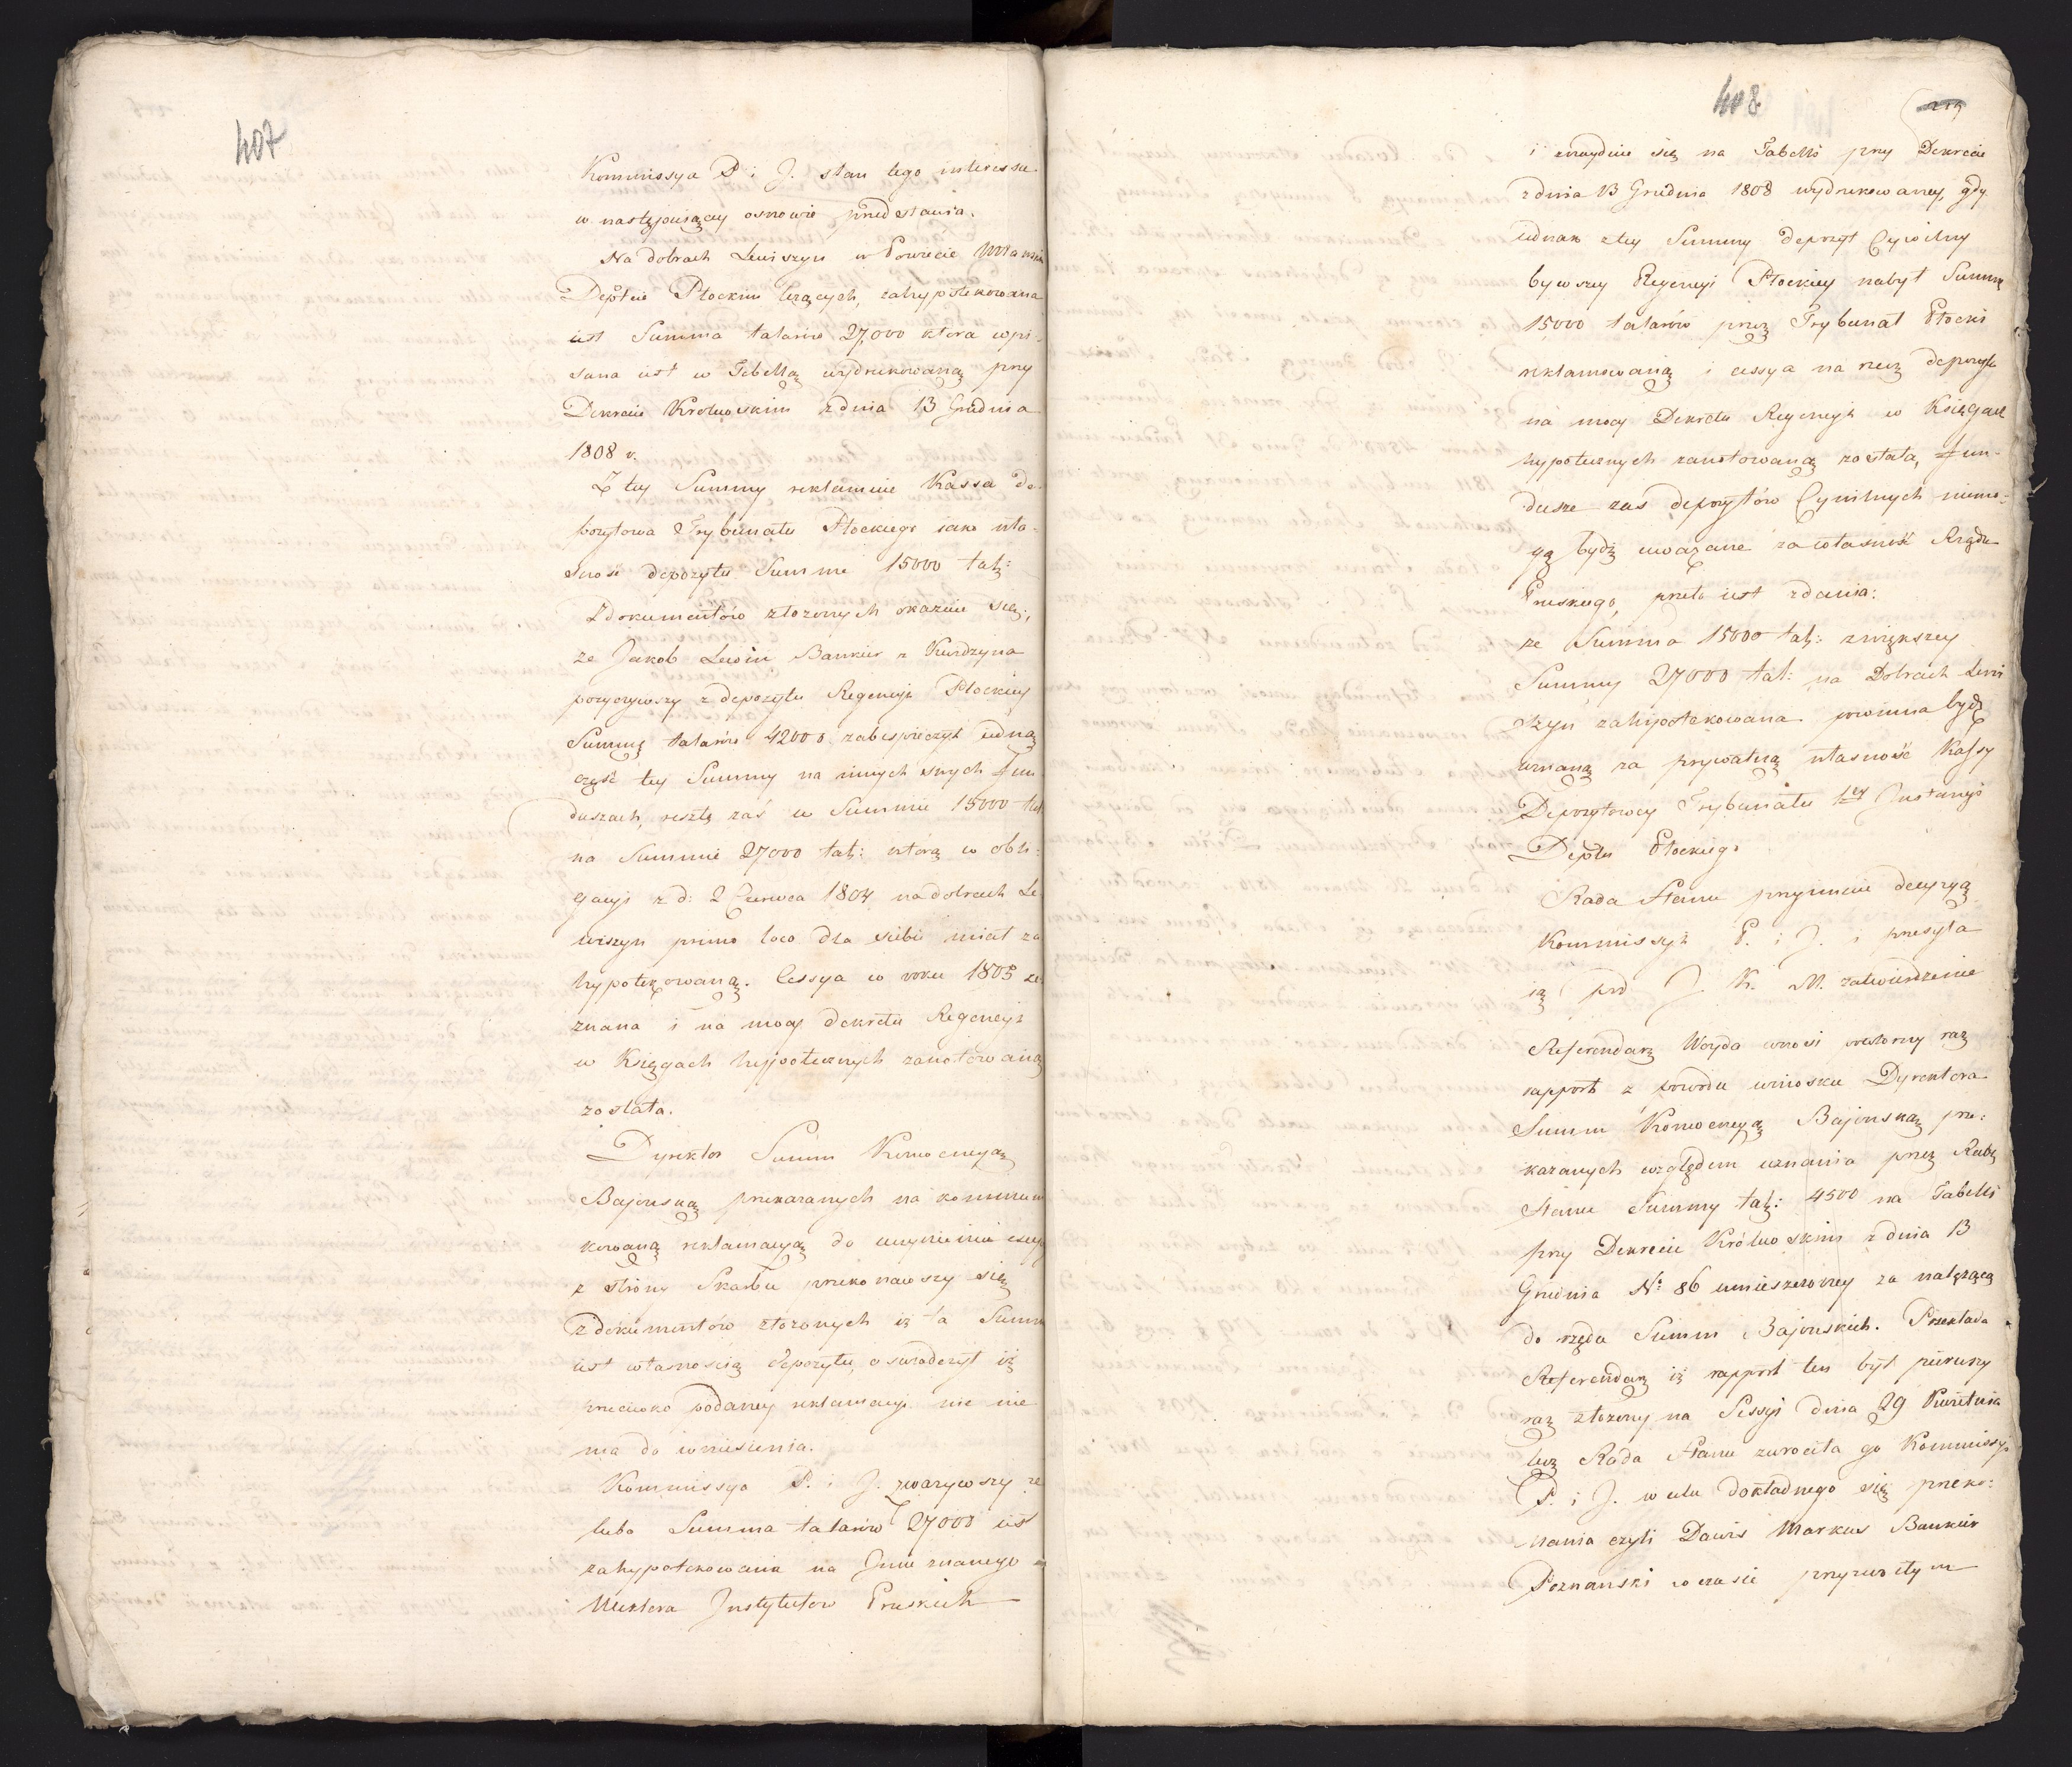 407
Kommissya P i J. stan tego interessu
w następuiący osnowie przedstawia.
Na dobrach Lewiszyn w Powiecie Mławskim
Deptcie Płockim leżących, zahypotekowana
iest Summa talarów 27,000 ktora wpi-
sana iest w Tabellą wydrukowaną przy
Dekrecie Krolewskim z dnia 13 Grudnia
1808 r.
Z tey Summy reklamuie Kassa de-
pozytowa Trybunału Płockiego iako wła-
sność depozytu Summe 15000 tal:
Z dokumentów złożonych okazuie się,
że Jakob Lewin Bankier z Kwidzyna
pożyczywszy z depozytu Regencyi Płockiey
Summę talarów 42000 zabespieczył iedną
część tey Summy na innych swych fun-
duszach, resztę zaś w Summie 15000 tal
na Summie 27000 tal: którą w obli-
gacyi z d: 2 Czerwca 1804 na dobrach Le-
wiszyn primo loco dla siebie miał za
hypotekowaną. Cessya w roku 1805 ze-
znana i na mocy dekretu Regencyi
w Księgach hypotecznych zanotowaną
została.
Dyrektor Summ Konwencyą
Bajońską przekazanych na kommuni-
kowaną reklamacyą do uczynienia
z strony Skarbu przekonawszy się
z dokumentów złożonych iż ta Summ
iest własnością depozytu, oswiadczył iż
przeciwko podaney reklamacyi nic nie
ma do wniesienia.
Kommissya P. i J. zważywszy że
lubo Summa talarów 27000 iest
zahypotekowana na Imie znanego
Mektera Instytutow Pruskich
408
i znayduie się na Tabelli przy Dekrecie
z dnia 13 Grudnia 1808 wydrukowaney, gdy
iednak z tey Summy depozyt Cywilny
bywszey Regencyi Płockiey nabył Summę
15000 talarów przez Trybunał Płocki
reklamowaną i cessya na rzecz depozytu
na mocy Dekretu Regencyi w Księgach
hypotecznych zanotowaną została, fun-
dusze zaś depozytów Cywilnych niemo-
gą bydź uważane za własność Rządu
Pruskiego, przeto iest zdania:
że Summa 15000 tal: z większey
Summy 27000 tal: na Dobrach Lewi
szyn zahipotekowana powinna bydź
uznaną za prywatną własność Kassy
Depozytowey Trybunału 1ey Instancyi
Deptu Płockiego
Rada Stanu przyimuie decyzyą
Kommissyi P. i J. i przesyła
ią pod J. K. M. zatwierdzenie
Referendarz Woyda wnosi powtorny raz
rapport z powodu wniosku Dyrektora
Summ Konwencyą Bajonską prze-
kazanych względem uznania przez Radę
Stanu Summy tal: 4500 na Tabelli
przy Dekrecie Królewskim z dnia 13
Grudnia No 86 umieszczoney za należącą
do rzędu Summ Bajońskich. Przekłada
Referendarz iż rapport ten był pierwszy
raz złożony na Sessyi dnia 29 Kwietnia
lecz Rada Stanu zwrociła go Kommissyi
P. i J. w celu dokładnego się przeko-
nania czyli Dawis Markus Bankier
Poznanski w czasie przyzwoitym